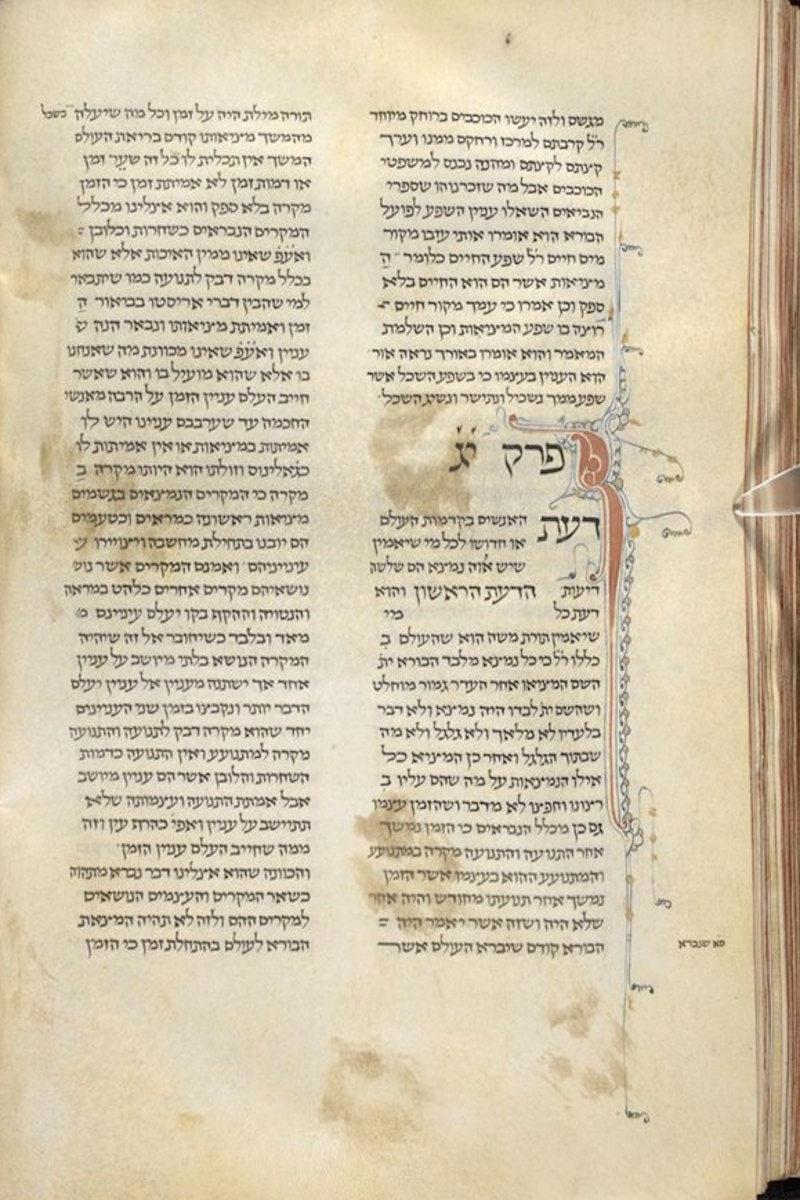 מגשם ולזה יעשו הכוכבים ברוחק מיוחד
ר״ל קרבתם למרכז ורחקם ממנו וערך
קצתם לקצתם ומהנה נכנס למשפטי
הכוכבים אבל מה שזכרנוהו שספרי
הנביאים השאלו ענין השפע לפועל
הבורא הוא אומרו אותי עזבו מקור
מים חיים ר״ל שפע החיים כלומר ה
מציאות אשר הם הוא החיים בלא
ספק וכן אמרו כי עמך מקור חיים
רוצה בו שפע המציאות וכן השלמת
המאמר והוא אומרו באורך נראה אור
הוא הענין בעינמו כי בשפע השכל אשר
שפע ממך נשכיל ונתישר ונשיג השכל
פרק יג
דעת האנשים בקדמות העולם
או חדושו לכל מי שיאמין
שיש אוה נמצא הם שלשה
דיעות הדעת הראשון והוא
דעת כל מי
שיאמין תורת משה הוא שהעולם ב
כללו ר״ל כי כל נמצא מלבד הבורא ית
השם המציאו אחר העדר גמור מוחלט
ושהשם ית לבדו היה נמצא ולא דבר
בלעדיו לא מלאך ולא גלגל ולא מה
שבתוך הגלגל ואחר כן המציא כל
אילו הנמצאות על מה שהם עליו ב
רצונו וחפצו לא מדבר ושהזמן עצמו
גם כן מכלל הנבראים כי הזמן נמשך
אחר התנועה והתנועה מקרה במתנועע
והמתנועע ההוא בעצמו אשר הזמן
נמשך אחר תנועתו מחודש והיה אחר
שלא היה ושזה אשר יאמר היה
הבורא קודם שיברא העולם אשר
תורה מילת היה על זמן וכל מה שיעלה בשכל
מהמשך מציאותו קודם בריאת העולם
המשך אין תכלית לו כל זה שער זמן
או דמות זמן לא אמיתת זמן כי הזמן
מקרה בלא ספק והוא אצלינו מכלל
המקרים הנבראים כשחרות וכלובן
ואע״פ שאינו ממין האיכות אלא שהוא
בכלל מקרה דבק לתנועה כמו שיתבאר
למי שהבין דברי אריסטו בביאור ה
זמן ואמיתת מציאותו ונבאר הנה
ענין ואע״פ שאינו מכוונת מה שאנחנו
בו אלא שהוא מועיל בו והוא שאשר
חייב העלם ענין הזמן על הרבה מאנשי
החכמה עד שערבבם ענינו היש לו
אמיתות במציאות או אין אמיתות לו
כגאלינוס וזולתו הוא היותו מקרה ב
מקרה כי המקרים הנמצאים בגשמים
מציאות ראשונה כמראים וכטעמים
הם יובנו בתחילת מחשבה ויצויירו
עינייניהם ואמנם המקרים אשר
נושאיהם מקרים אחרים כלהט במראה
והנטויה וההקף בקו יעלם עינינם
מאד ובלבד כשיחובר אל זה שיהיה
המקרה הנושא בלתי מיושב על ענין
אחד אך ישתנה מענין אל ענין יעלם
הדבר יותר ונקבצו בזמן שני הענינים
יחד שהוא מקרה דבק לתנועה והתנועה
מקרה למתנועע ואין התנועה כדמות
השחרות והלובן אשר הם ענין מיושב
אבל אמתת התנועה ועצמותה שלא
תתיישב על ענין ואפי׳ כהרף עין וזה
ממה שחייב העלם ענין הזמן
והכוונה שהוא אצלינו דבר נברא מתהוה
כשאר המקרים והעצמים הנושאים
למקרים ההם ולזה לא תהיה המצאת
הבורא לעולם בהתחלת זמן כי הזמן